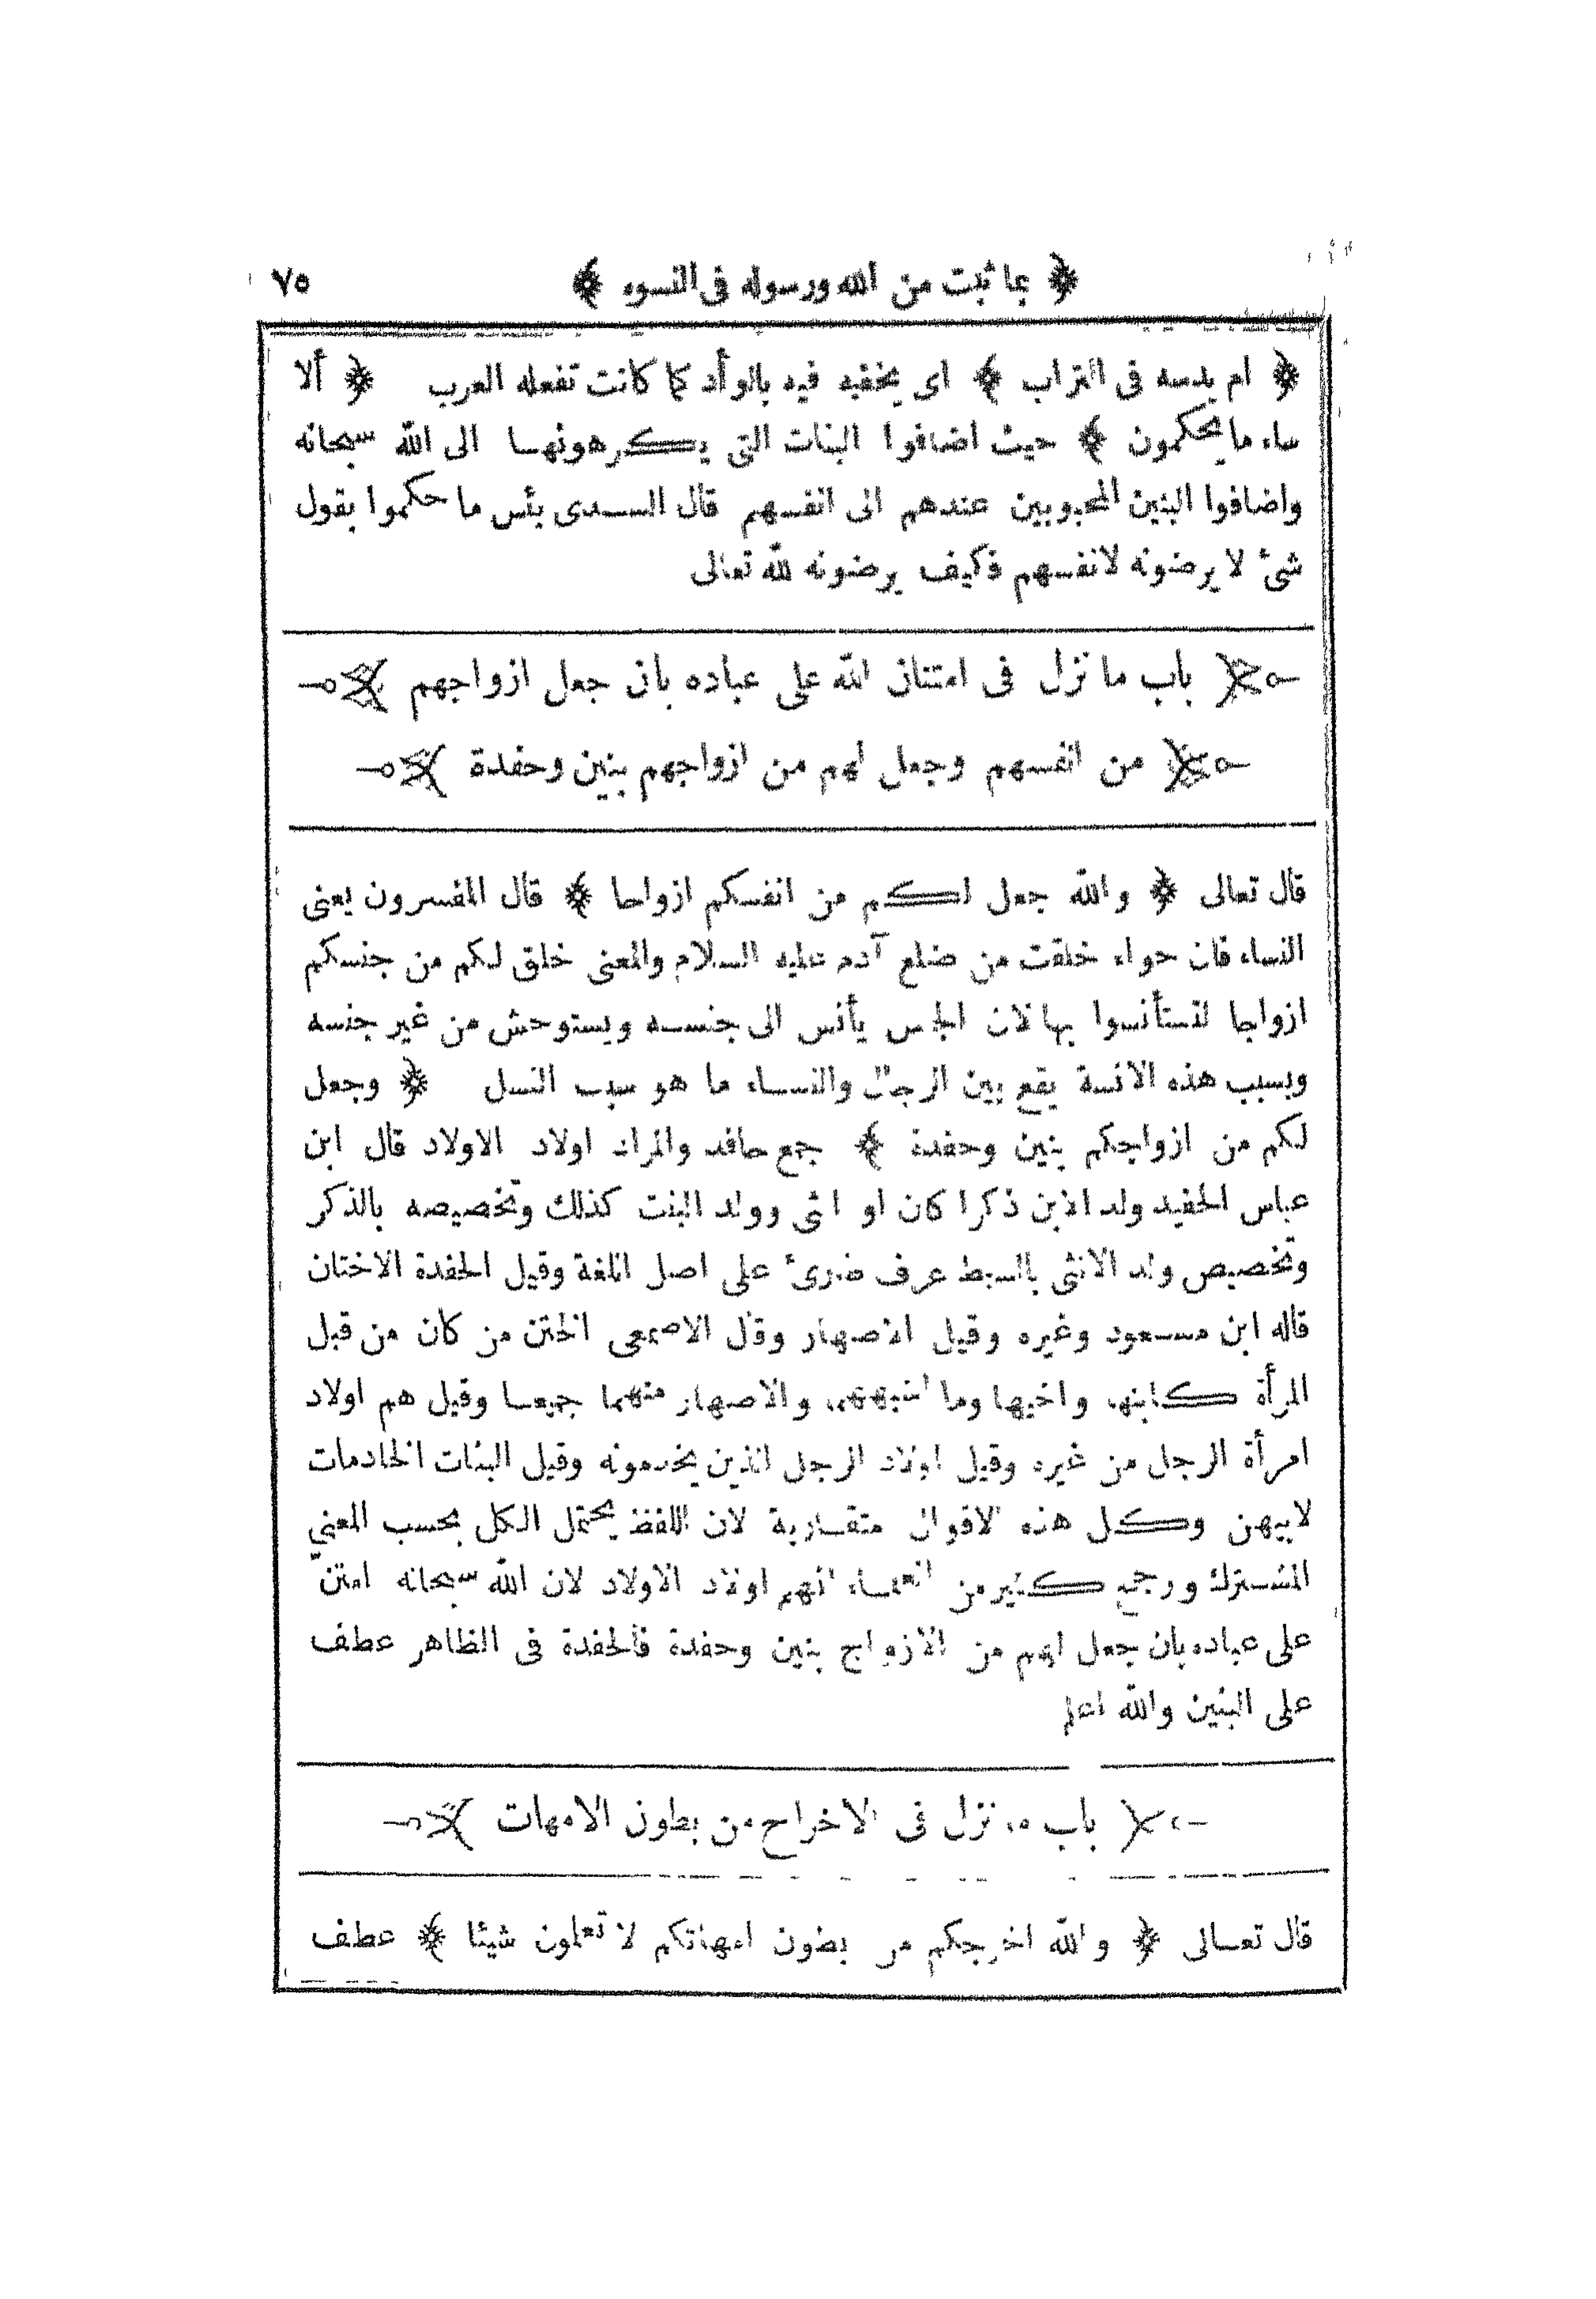 ﴿ بما ثبت من الله ورسوله فى النسوه ﴾ ٧٥
﴿ ام يدسه فى التراب ﴾ اى يخفيه فيه بالوأد كما كانت تفعله العرب ﴿ ألا
ساء ما يحكمون ﴾ حيث اضافوا البنات التى يكرهونها الى الله سبحانه
واضافوا البنين المحبوبين عندهم الى انفسهم قال السدى بئس ما حكموا بقول
شئ لا يرضونه لانفسهم فكيف يرضونه لله تعالى
باب ما نزل فى امتنان الله على عباده بان جعل ازواجهم
من انفسهم وجعل لهم من ازواجهم بنين وحفدة
قال تعالى ﴿ والله جعل لكم من انفسكم ازواجا ﴾ قال المفسرون يعنى
النساء فان حواء خلقت من ضلع آدم عليه السلام والمعنى خلق لكم من جنسكم
ازواجا لتستأنسوا بها لان الجنس يأنس الى جنسه ويستوحش من غير جنسه
وبسبب هذه الانسة يقع بين الرجال والنساء ما هو سبب النسل ﴿ وجعل
لكم من ازواجكم بنين وحفدة ﴾ جمع حافد والمراد اولاد الاولاد قال ابن
عباس الحفيد ولد الابن ذكرا كان او انثى وولد البنت كذلك وتخصيصه بالذكر
وتخصيص ولد الانثى بالسبط عرف طرئ على اصل اللغة وقيل الحفدة الاختان
قاله ابن مسعود وغيره وقيل الاصهار وقال الاصمعى الختن من كان من قبل
المرأة كابنها واخيها وما اشبههما والاصهار منهما جميعا وقيل هم اولاد
امرأة الرجل من غيره وقيل اولاد الرجل الذين يخدمونه وقيل البنات الخادمات
لابيهن وكل هذه الاقوال متقاربة لان اللفظ يحتمل الكل بحسب المعنى
المشترك ورجح كثير من العلماء انهم اولاد الاولاد لان الله سبحانه امتنّ
على عباده بان جعل لهم من الازواج بنين وحفدة فالحفدة فى الظاهر عطف
على البنين والله اعلم
باب ما نزل فى الاخراج من بطون الامهات
قال تعالى ﴿ والله اخرجكم من بطون امهاتكم لا تعلمون شيئا ﴾ عطف